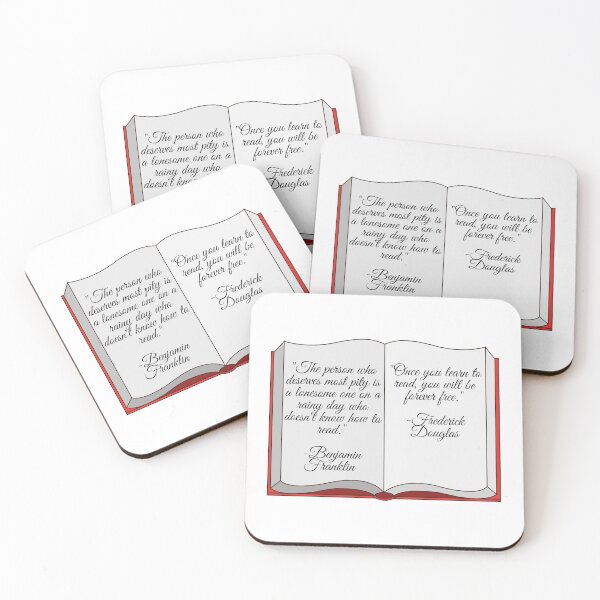 "The person who
deserves most pity is
a lonesome one on a
rainy day who
doesn't know
"Once you learn to
read, you will be
forever free."
-Frederick
Douglas
"The person who
deserves most pity is
a lonesome one on a
rainy day who
doesn't know how to
read."
-Benjamin
Franklin
"Once you learn to
read, you will be
forever free."
-Frederick
Douglas
"The person who
deserves most pity is
a lonesome one on a
rainy day who
doesn't know how to
read."
-Benjamin
Franklin
"Once you learn to
read, you will be
forever free."
-Frederick
Douglas
"The person who
deserves most pity is
a lonesome one on a
rainy day who
doesn't know how to
read."
-Benjamin
Franklin
"Once you learn to
read, you will be
forever free."
-Frederick
Douglas